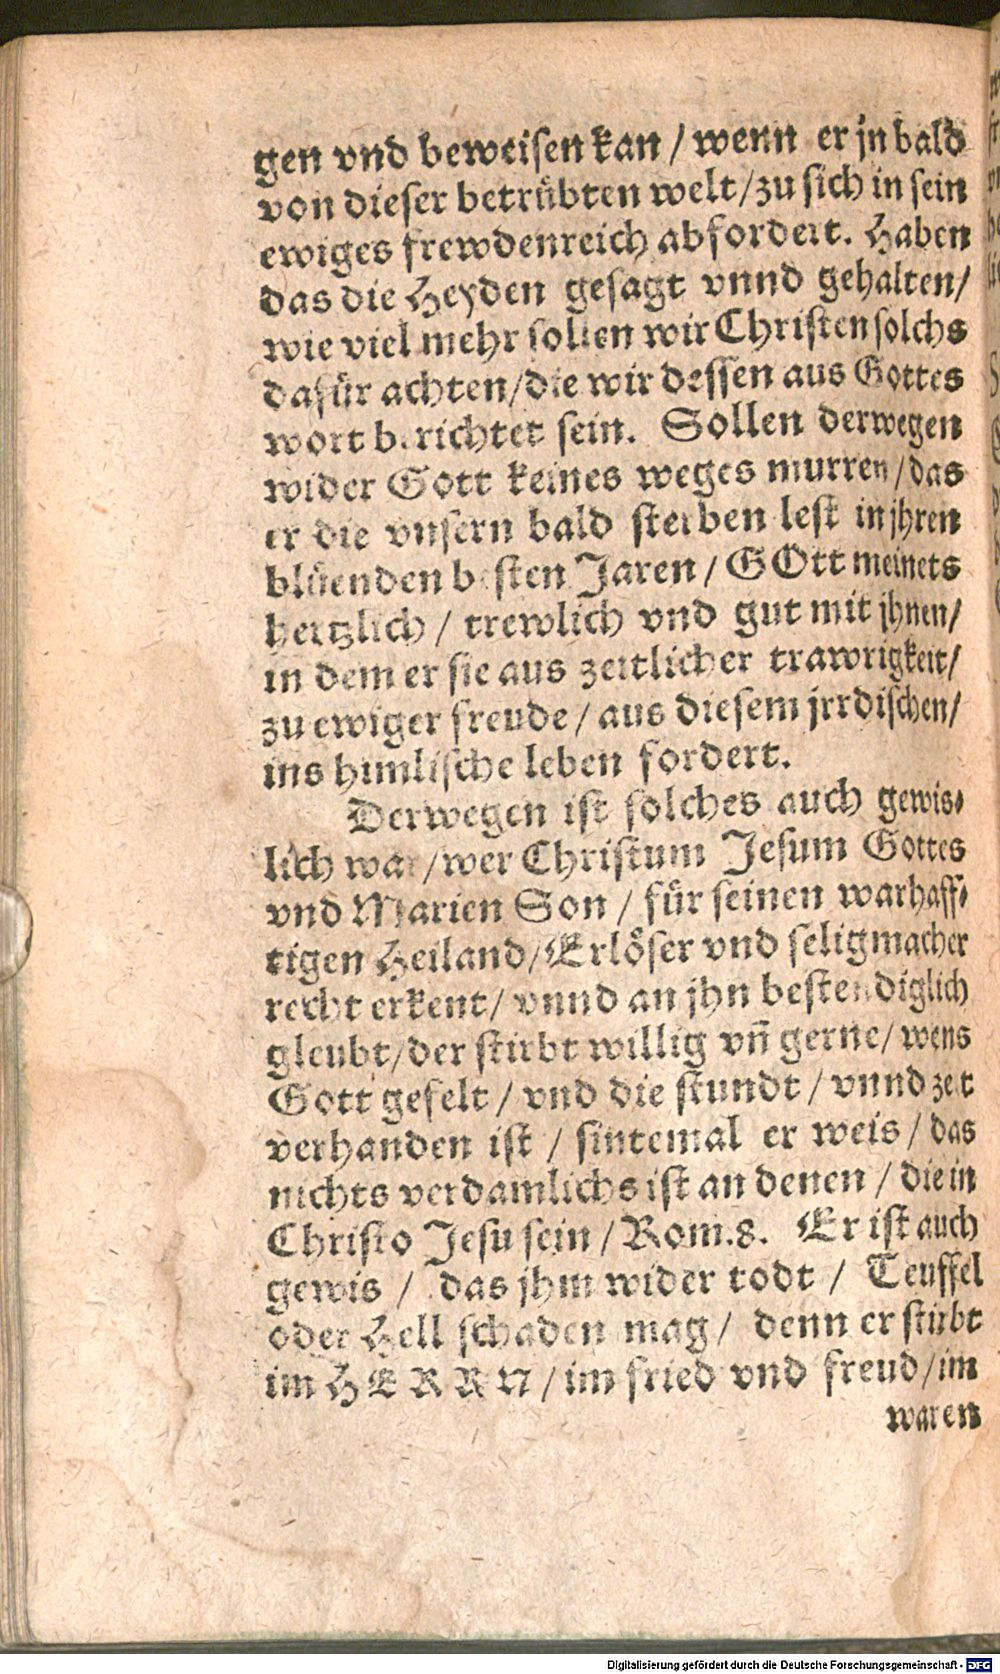 gen vnd beweisen kan / wenn er jn bald
von dieser betrübten welt / zu sich in sein
ewiges frewdenreich abfordert. Haben
das die Heyden gesagt vnnd gehalten /
wie viel mehr sollen wir Christen solchs
dafür achten / die wir dessen aus Gottes
wort berichtet sein. Sollen derwegen
wider Gott keines weges murren / das
er die vnsern bald sterben lest in jhren
blüenden besten Jaren / GOtt meinets
hertzlich / trewlich vnd gut mit jhnen /
in dem er sie aus zeitlicher trawrigkeit /
zu ewiger freude / aus diesem jrrdischen /
ins himlische leben fordert.
Derwegen ist solches auch gewis⸗
lich war / wer Christum Jesum Gottes
vnd Marien Son / für seinen warhaff⸗
tigen Heiland / Erlöser vnd seligmacher
recht erkent / vnnd an jhn bestendiglich
gleubt / der stirbt willig vn̄ gerne / wens
Gott gefelt / vnd die stundt / vnnd zeit
verhanden ist / sintemal er weis / das
nichts verdamlichs ist an denen / die in
Christo Jesu sein / Rom. 8. Er ist auch
gewis / das jhm wider todt / Teuffel
oder Hell schaden mag / denn er stirbt
im HERRN / im fried vnd freud / im
waren
Digitalisierung gefördert durch die Deutsche Forschungsgemeinschaft - DFG